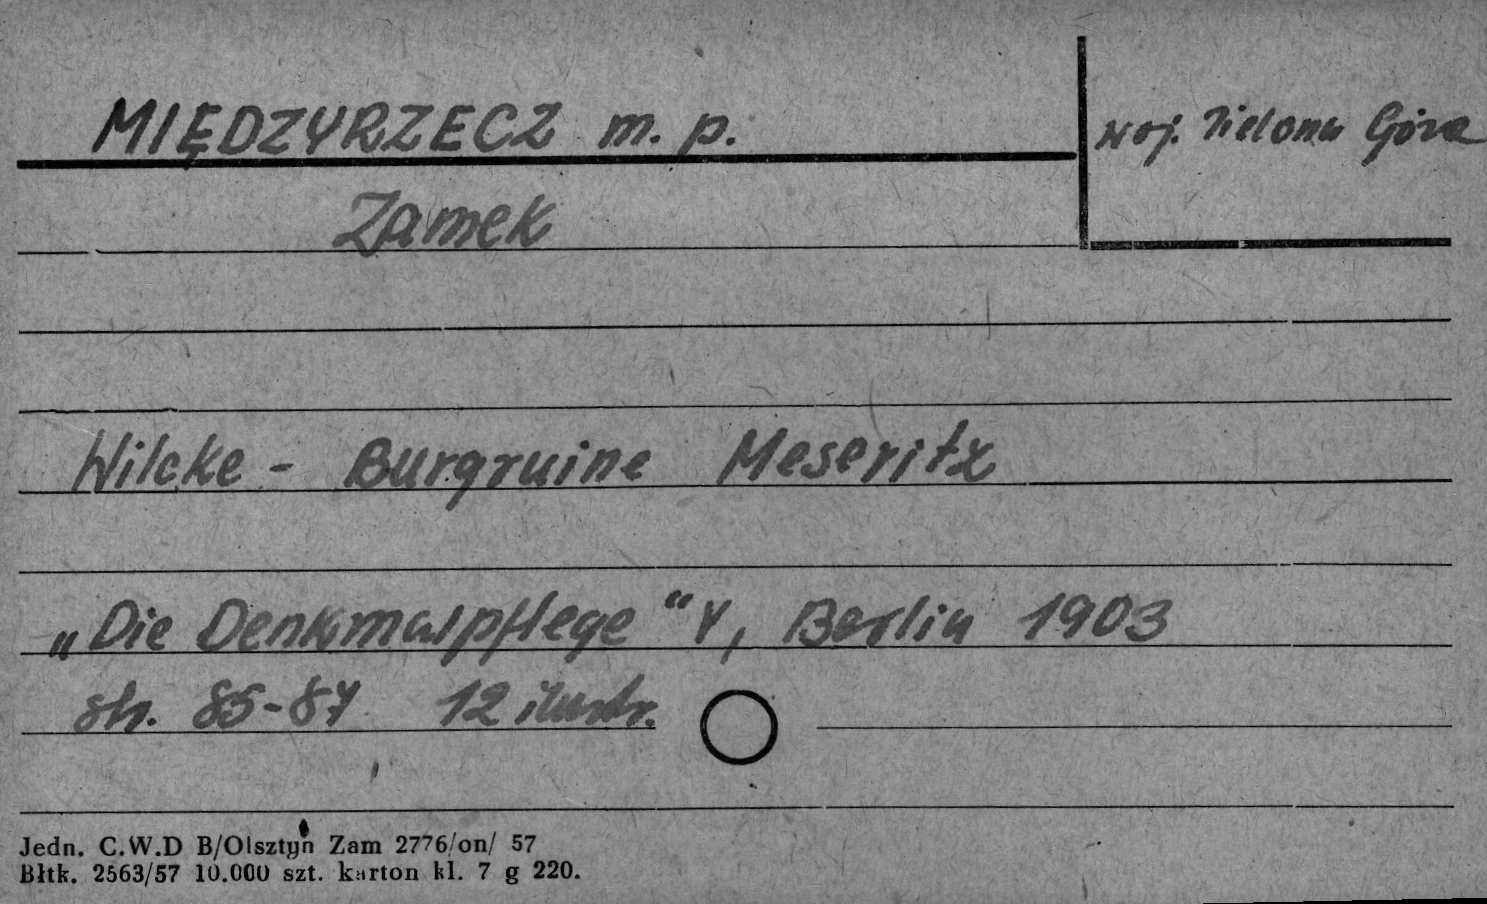 MIĘDZYRZECZ m. p.
woj. Zielona Góra
Zamek
Wilcke - Burgruine Meseritz
„Die Denkmalpflege" V, Berlin 1903
str. 85-87 12 ilustr.
Jedn. C.W.D B/Olsztyn Zam 2776/on/ 57
Błtk. 2563/57 10.000 szt. karton kl. 7 g 220.